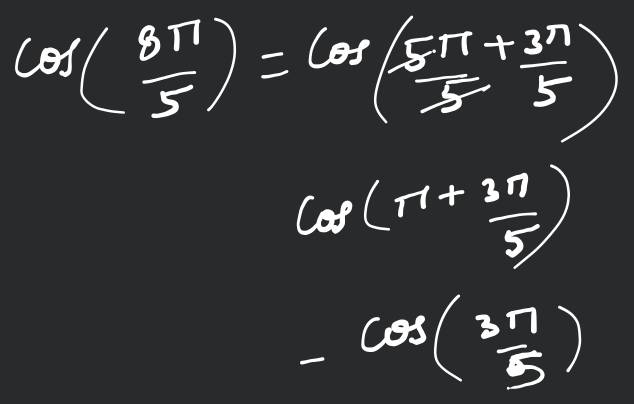 cos(8π/5) = cos(5π/5 + 3π/5)
cos(π + 3π/5)
- cos(3π/5)